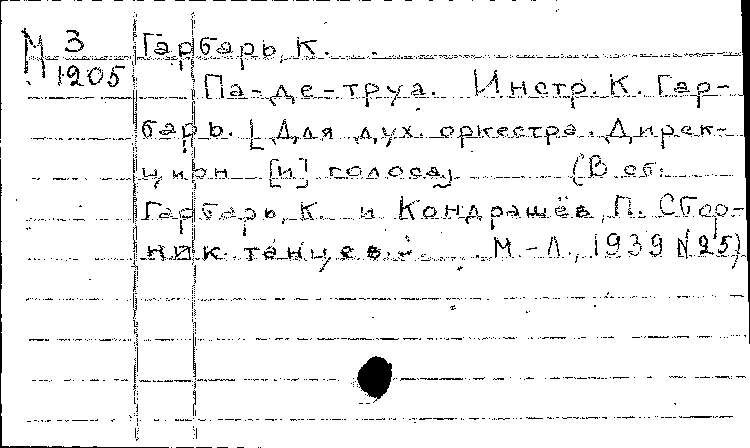 М 3 Гарбарь, К.
1205
Па-де-труа. Инстр. К. Гар-
барь. [Для дух. оркестра. Дирек-
цион [и] голоса] (В сб.
Гарбарь, К. и Кондрашёв, П. Сбор-
ник танцев. М.-Л., 1939 (25)